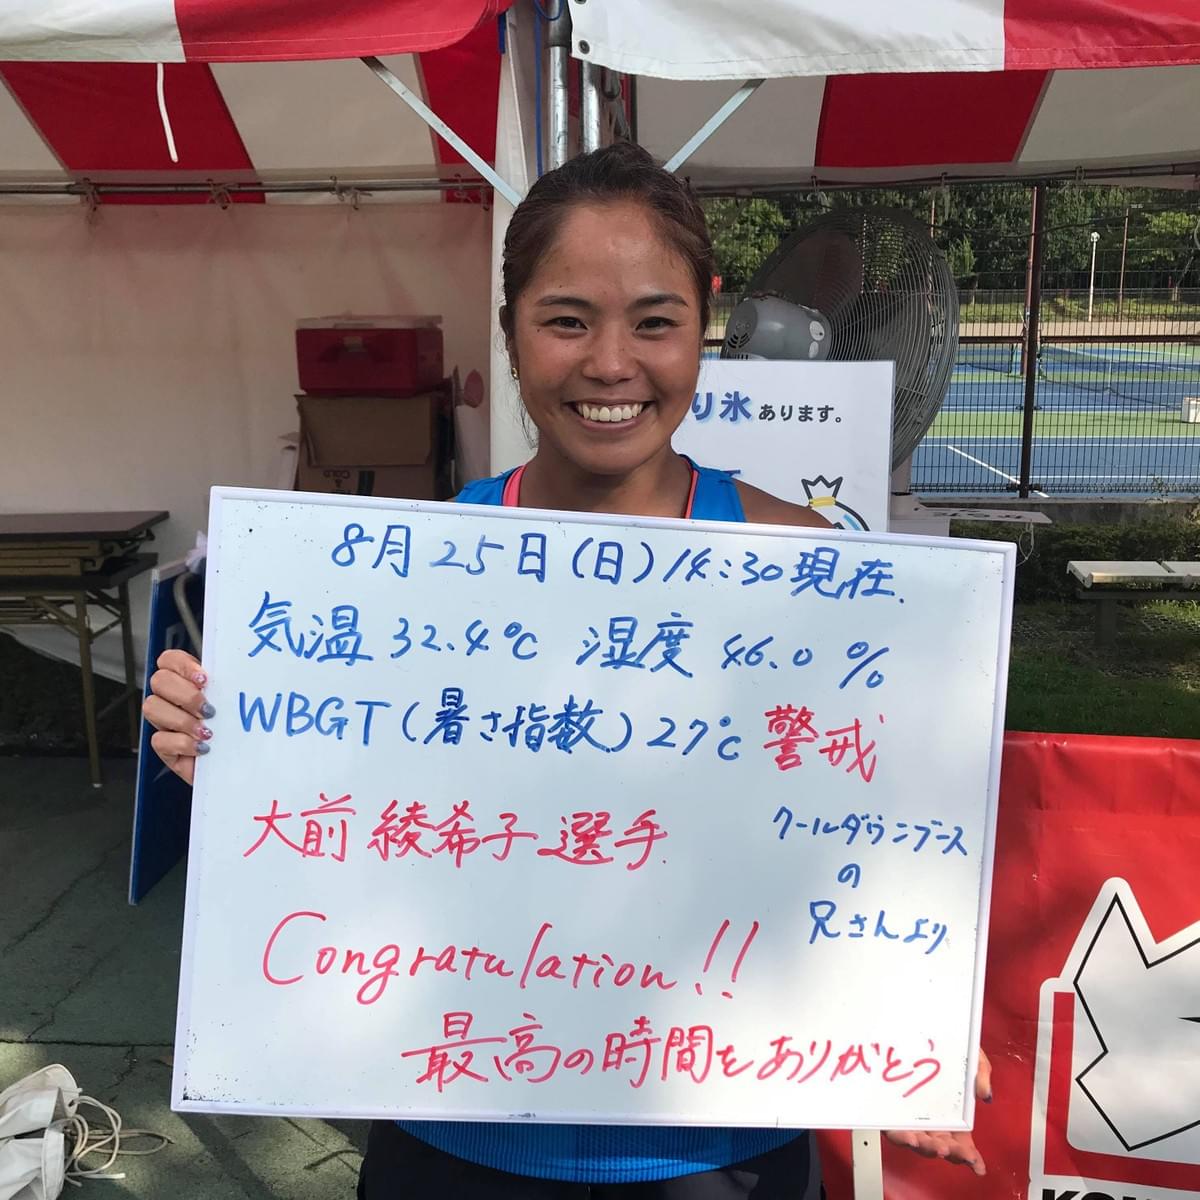 り氷あります。
8月25日(日)14:30現在.
気温 32.4℃ 湿度 46.0%
WBGT(暑さ指数)27℃ 警戒
大前 綾希子選手.
クールダウンブース
の
兄さんより
Congratulation!!
最高の時間をありがとう